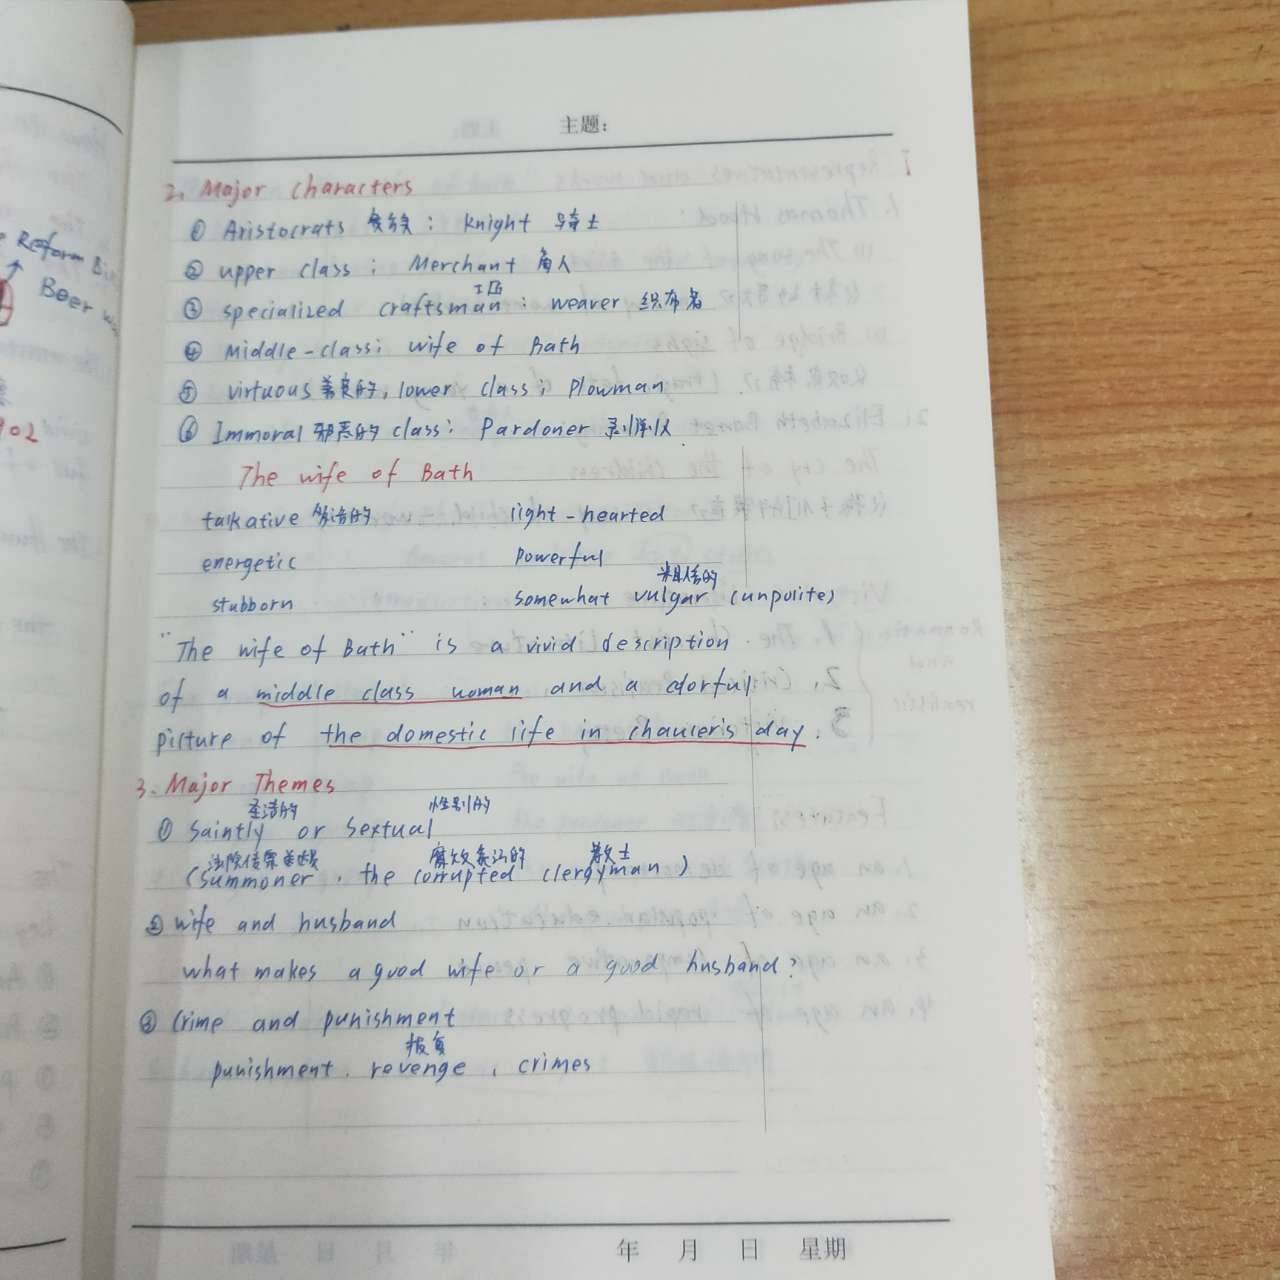 主题:
2. Major characters
① Aristocrats 贵族 : Knight 骑士
② upper class : Merchant 商人
工匠
③ specialized craftsman : weaver 织布者
④ Middle-class: wife of Bath
⑤ virtuous 善良的, lower class : Plowman
⑥ Immoral 邪恶的 class : Pardoner
The wife of Bath
talkative 多话的 light-hearted
energetic powerful
粗俗的
stubborn somewhat vulgar (unpolite)
"The wife of Bath" is a vivid description
of a middle class woman and a colorful
picture of the domestic life in chaucer's day.
3. Major Themes
圣洁的 性别的
① Saintly or Sextual
教士
(summoner, the corrupted clergyman)
② wife and husband
what makes a good wife or a good husband?
③ Crime and punishment
报复
punishment, revenge, crimes
年 月 日 星期
Reform
Beer
902